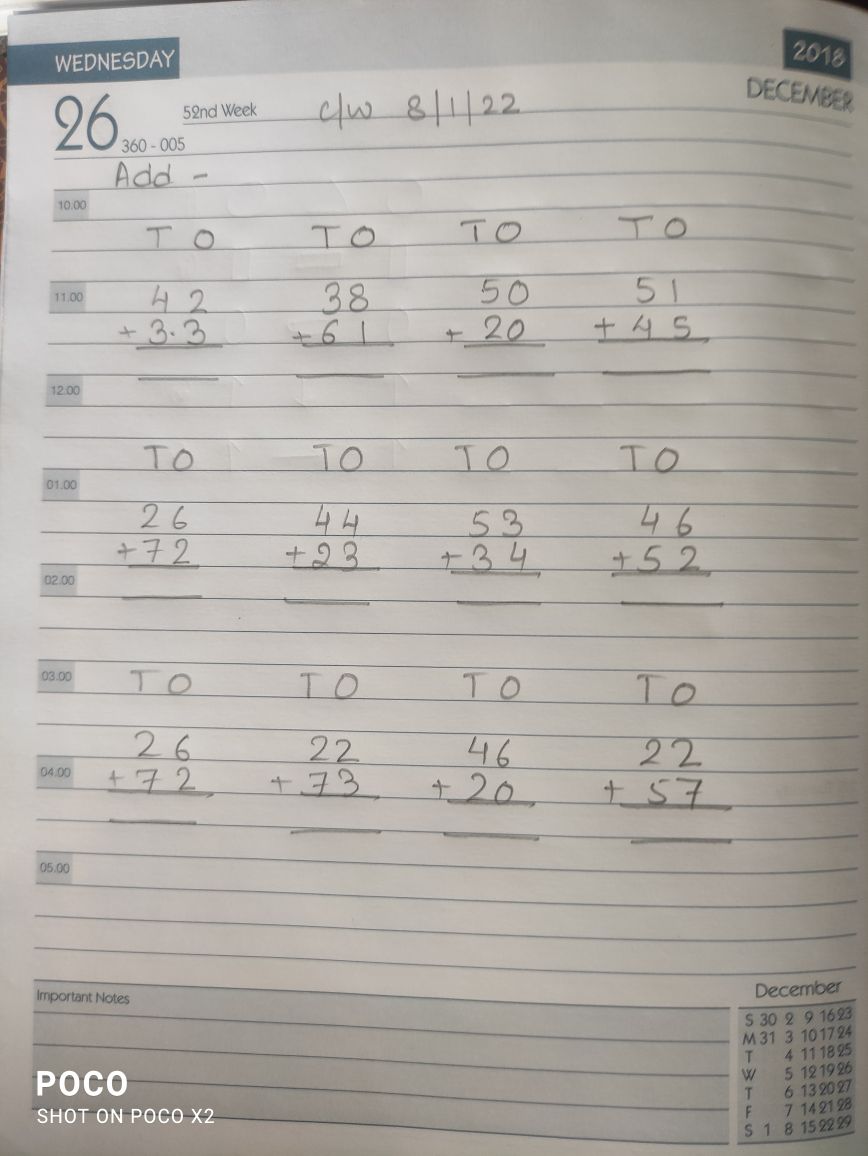 WEDNESDAY 2018
26 52nd Week c/w 8/1/22 DECEMBER
360 - 005
Add -
10.00
T O T O T O T O
11.00 42 38 50 51
+ 3.3 + 61 + 20 + 45
12.00
T O T O T O T O
01.00
26 44 53 46
+72 +23 +34 +52
02.00
03.00 T O T O T O T O
26 22 46 22
04.00 + 72 + 73 + 20 + 57
05.00
Important Notes December
S 30 2 9 16 23
M 31 3 10 17 24
T 4 11 18 25
W 5 12 19 26
T 6 13 20 27
F 7 14 21 28
S 1 8 15 22 29
POCO
SHOT ON POCO X2